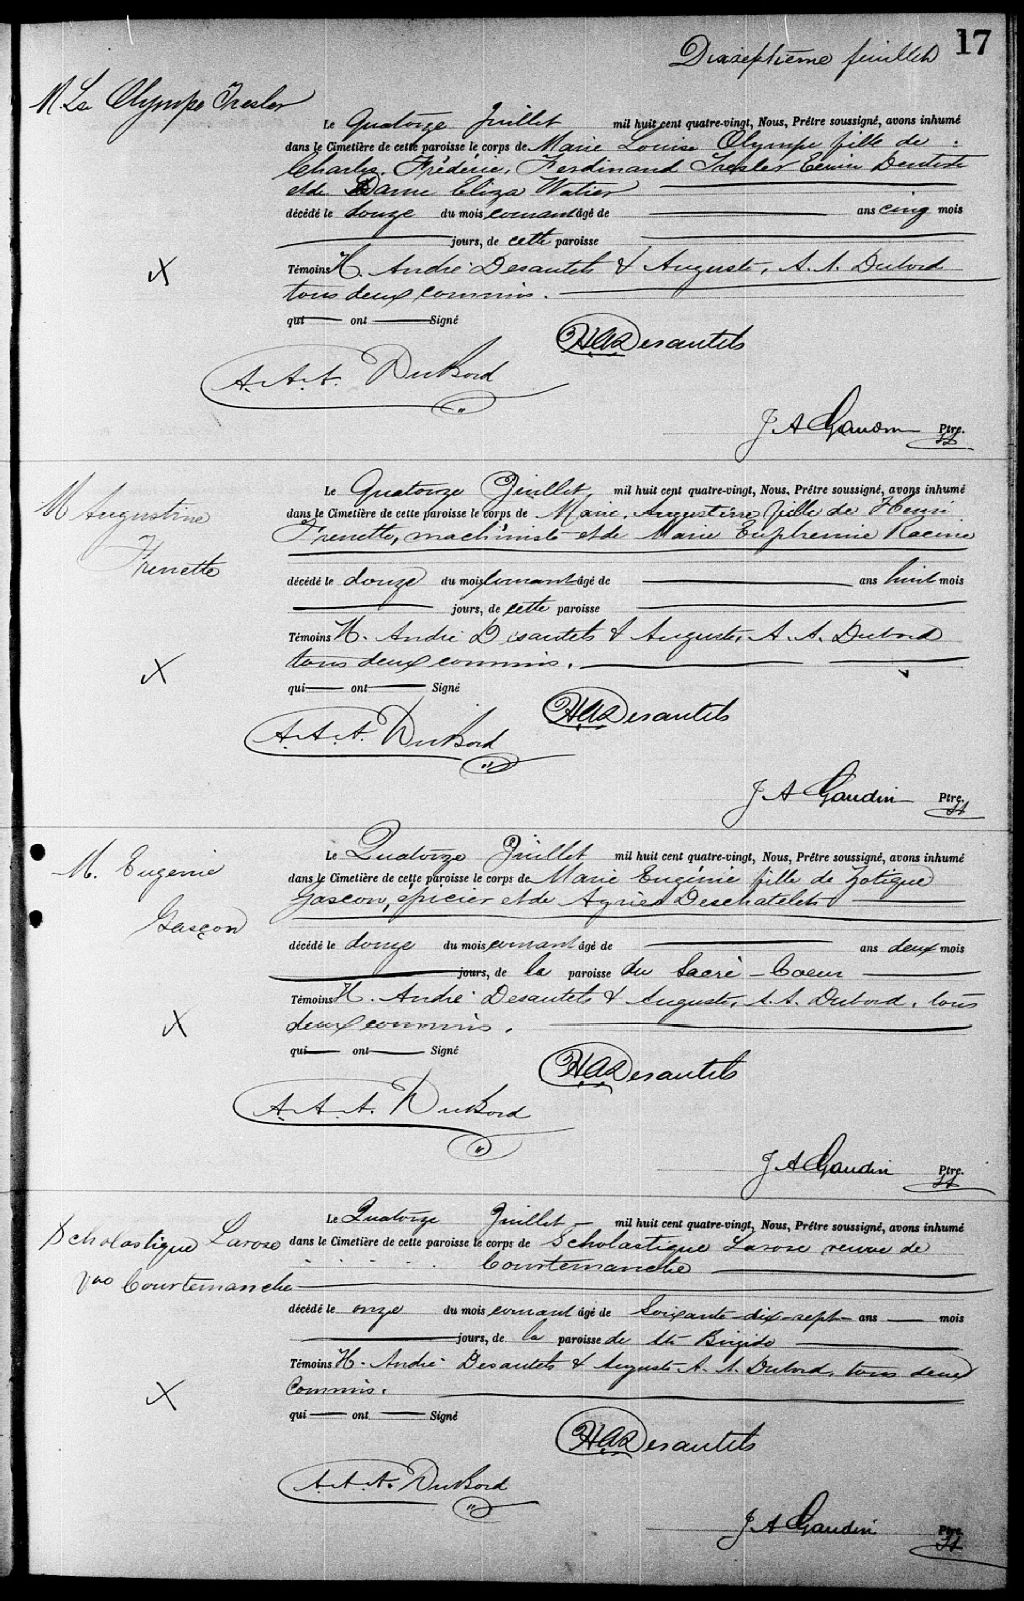 17
Dixseptième feuillet
M. Ls. Olympe Tresler
Le Quatorze Juillet mil huit cent quatre-vingt, Nous, Prêtre soussigné, avons inhumé
dans le Cimetière de cette paroisse le corps de Marie Louise Olympe fille de
Charles, Fréderic, Ferdinand Tresler Dentiste
et de Dame Eliza Watier
décédé le douze du mois courant âgé de ans cinq mois
jours, de cette paroisse
Témoins H. André Desautels & Auguste, A. A. Dubord
tous deux commis.
qui ont Signé
HADesautels
A. A. A. DuBord
J A Gaudin Ptre.
M Augustine
Frenette
Le Quatorze Juillet mil huit cent quatre-vingt, Nous, Prêtre soussigné, avons inhumé
dans le Cimetière de cette paroisse le corps de Marie, Augustine fille de Henri
Frenette, machiniste et de Marie Euphremie Racine
décédé le douze du mois courant âgé de ans huit mois
jours, de cette paroisse
Témoins H. André Desautels & Auguste, A. A. Dubord
tous deux commis.
qui ont Signé
HADesautels
A. A. A. DuBord
J A Gaudin Ptre.
M. Eugenie
Gascon
Le Quatorze Juillet mil huit cent quatre-vingt, Nous, Prêtre soussigné, avons inhumé
dans le Cimetière de cette paroisse le corps de Marie Eugénie fille de Zotique
Gascon, épicier et de Agnès Deschatelets
décédé le douze du mois courant âgé de ans deux mois
jours, de la paroisse du Sacré-Coeur
Témoins H. André Desautels & Auguste, A. A. Dubord, tous
deux commis.
qui ont Signé
HADesautels
A. A. A. DuBord
J A Gaudin Ptre.
Scholastique Larose
Vve Courtemanche
Le Quatorze Juillet mil huit cent quatre-vingt, Nous, Prêtre soussigné, avons inhumé
dans le Cimetière de cette paroisse le corps de Scholastique Larose veuve de
. . . . . Courtemanche
décédé le onze du mois courant âgé de Soixante-dix-sept ans mois
jours, de la paroisse de Ste Brigide
Témoins H. André Desautels & Auguste A. A. Dubord, tous deux
commis.
qui ont Signé
HADesautels
A. A. A. DuBord
J A Gaudin Ptre.